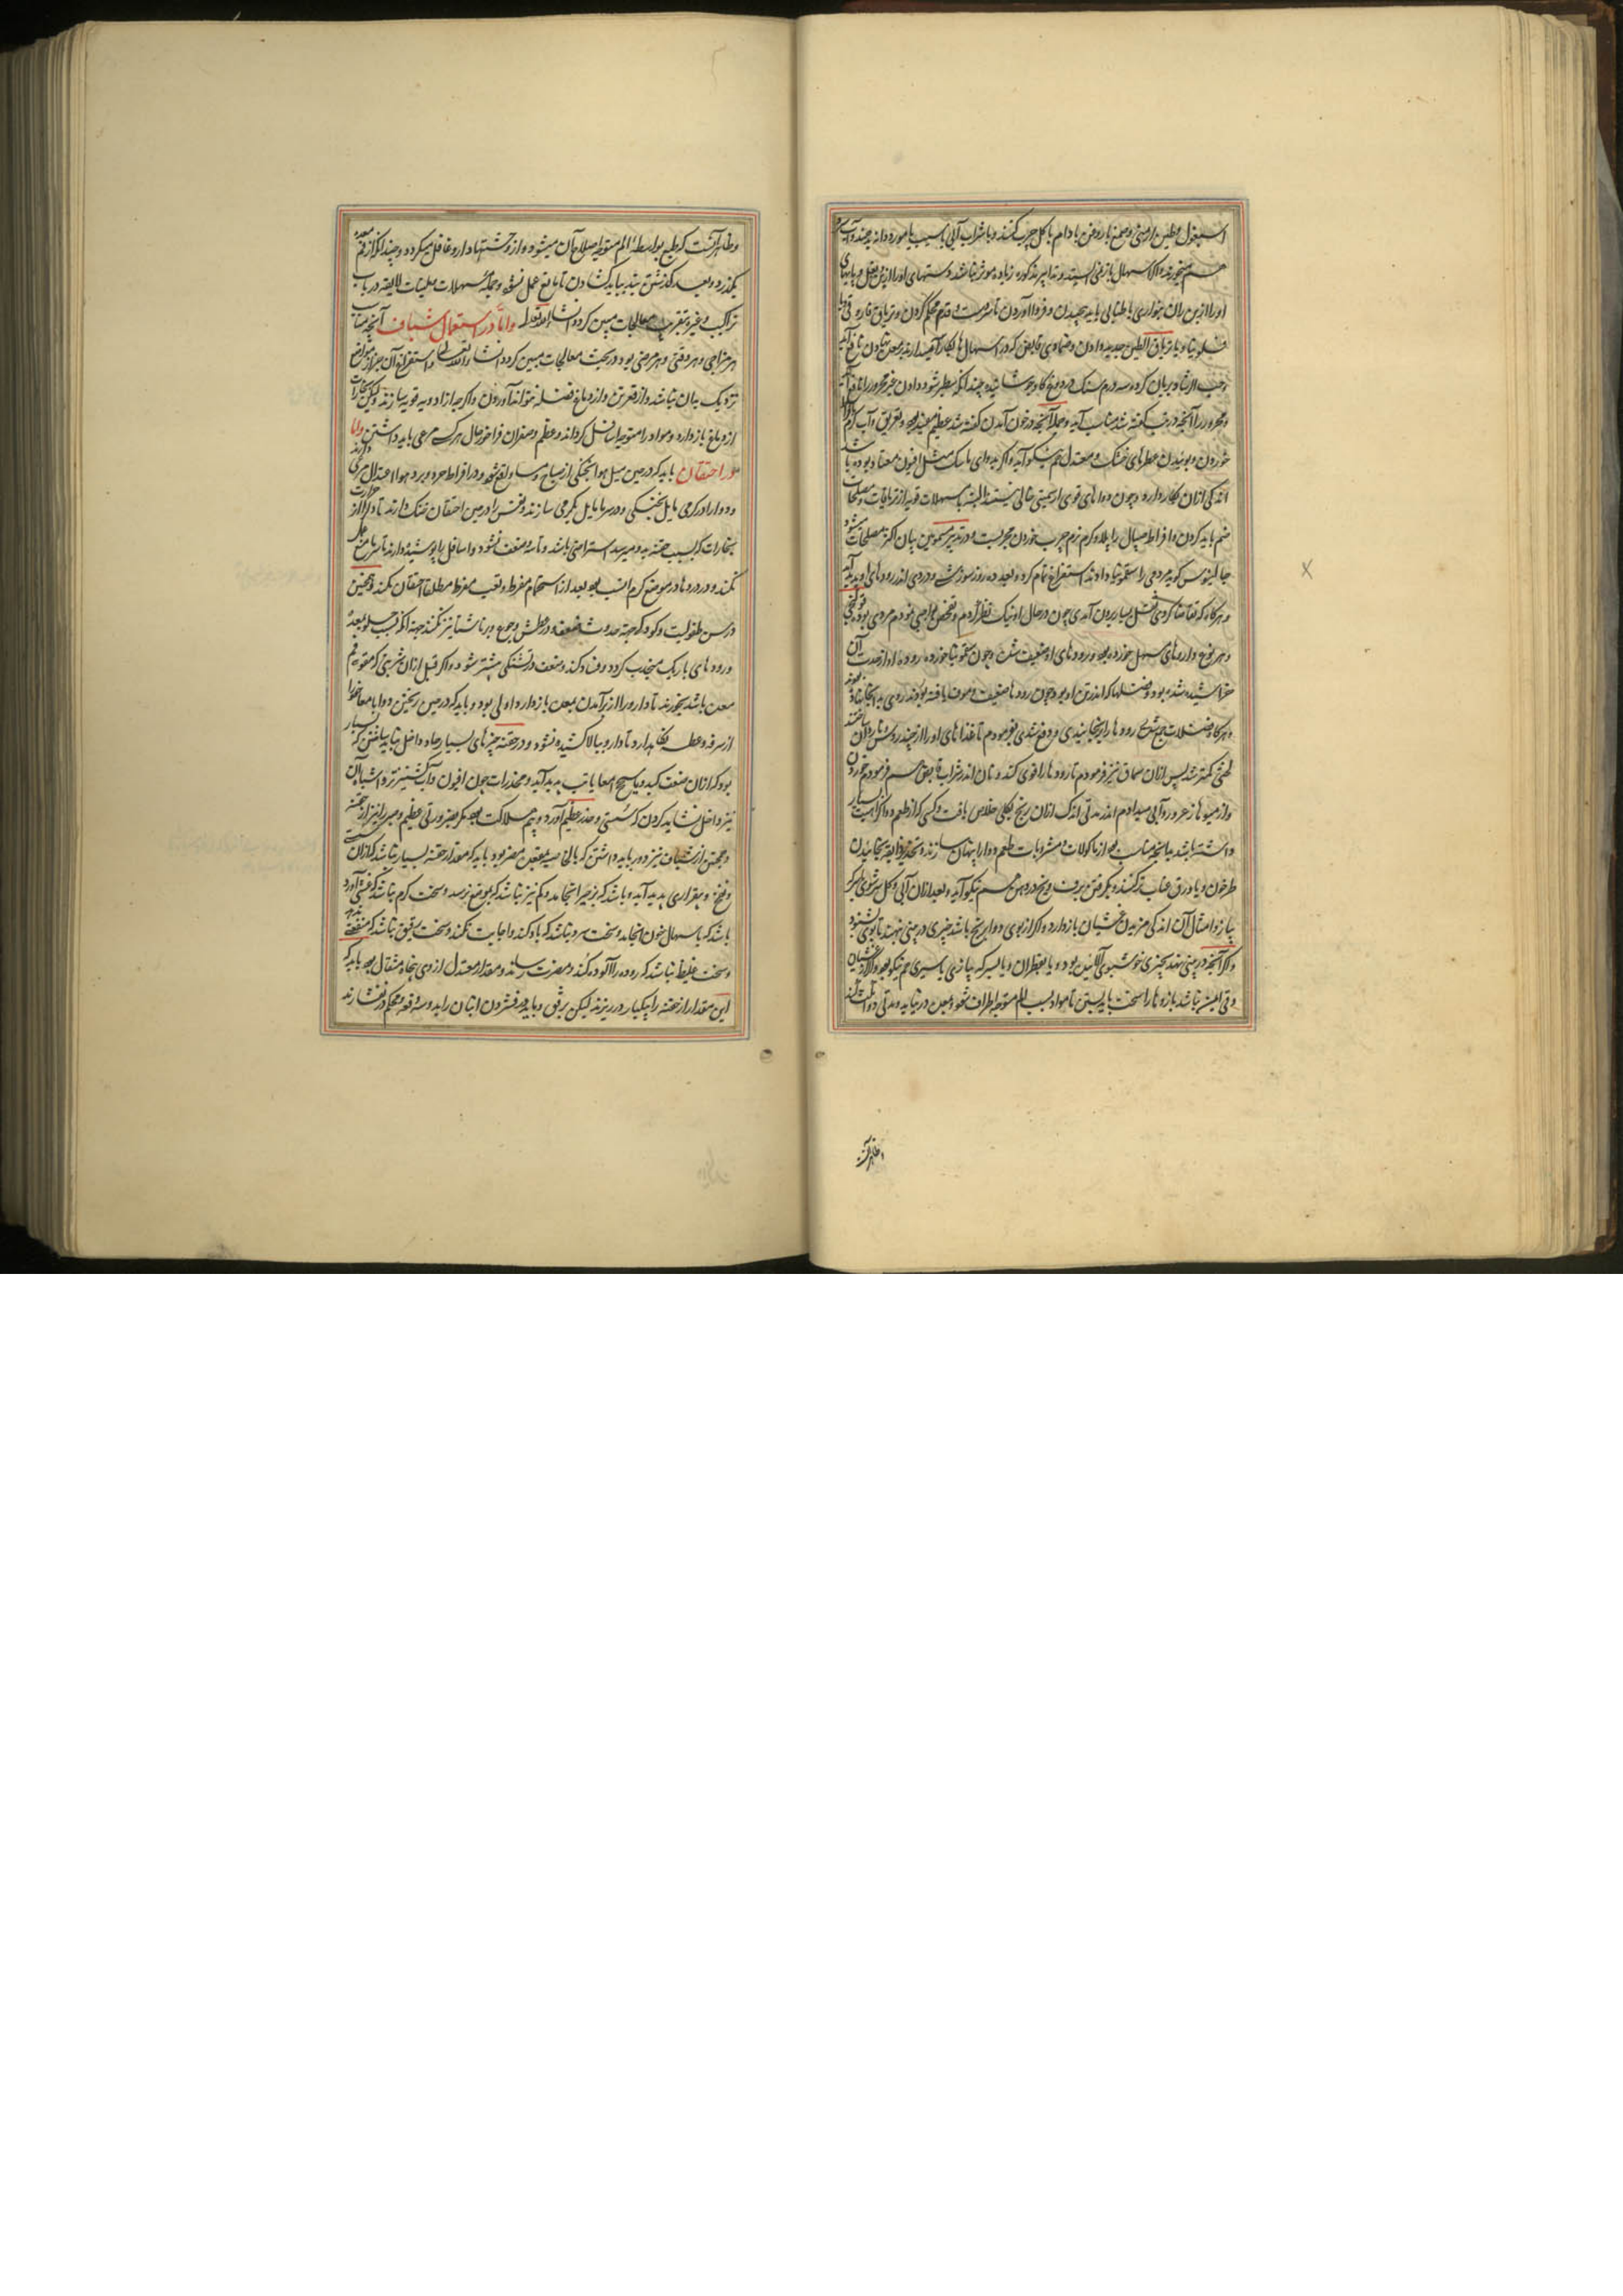 اسبغول و طین ارمنی و صمغ با روغن بادام یا کل چرب کنند و با شراب آبی یا سیب یا مورد دانه
هم میخورند و اگر اسهال باز نمی ایستد و تدابیر مذکوره زیاده موثر نباشد دستهای او را از زیر بغل و پایهای
او را از بن ران بنواری باید پیچیدن و فرود آوردن تا سر دست و قدم محکم کردن و تریاق فاروق
فلونیا و یا تریاق الطین جدید دادن و ضمادی قابض که در اسهال بکار آمد
حب الرشاد بریان کرده سه درم سنک در دوغ کاو جوشانیده چندانکه سطبر شود دادن
و محرور را آنچه در تب گفته شد مناسب آید و جمله آنچه در خون آمدن گفته شد عظیم مفید بود و تعریق و آب گرم
خوردن و بوئیدن عطرهای خنک و معتدل هم نیکو آید و اگر بدوای ماسک مثل افیون معتاد بوده باشد
اندکی از آن بکار دارد و چون دواهای قوی از سمیتی خالی نیستند البته با مسهلات قویه از تریاقات و مصلحات
ضم باید کردن و افراط اسهال را پلاو گرم نرم چرب خوردن مجربست و در تدبیر مسمومین بیان اکثر مصلحات شود
جالینوس گوید مردمی را سقمونیا دادند استفراغ تمام کرد و بعد ده روز سوزش و دردی اندر رودهای او پدید آمد
و هرگاه که تقاضا کردی ثفل بسیار بیرون آمدی چون در حال او نیک نظر کردم و تفحص
و هر نوع داروهای مسهل خورده بود و رودهای او ضعیف شده و چون سقمونیا خورده رودهاء او از حدت آن
خراشیده شده بود و فضلها که اندر تن او بود چون رودها ضعیف و موف یافته بودند روی بدانجا نهاده
و هرگاه فضلات جمع شدی رودها را برنجانیدی و دفع شدی بفرمودم تا غذاهای او را از چند روش
لختی کمتر شد پس از آن سماق نیز فرمودم تا رودها را قوی کند و نان اندر شراب قابض هم فرمودم خوردن
و از میوها زعرور و آبی میدادم اندر مدتی اندک از آن رنج بکلی خلاص یافت و کسی که از طعم دوا کراهیت
داشته باشد بآنچه مناسب بود از ماکولات و مشروبات طعم دوا را پنهان سازند و تخدیر ذایقه بخائیدن
طرخون و یا ورق عناب تر کنند و بگرفتن برف و یخ در دهن هم نیکو آید و بعد از آن آبی و گل سرشوی
پیاز و امثال آن اندکی مزیدن غشیان باز دارد و اگر از بوی دوا برنج باشد چیزی در بینی نهند تا بوی نشنود
و اگر آنچه در بینی نهند بچیزی خوشبوی آلائیده بود و یا بقطران و یا بسرکه پیازی یا سیری هم نیکو بود و اگر از غشیان
و قی ایمن نباشد بازوها را سخت باید بستن تا مواد بسبب الم متوجه اطراف شود و بمعده در نیاید و مدتی دوا
و ظاهر آنست
و ظاهر آنست که طبع بواسطه الم متوجه اصلاح آن میشود و از وحشتهاء دارو غافل میگردد و چندانکه از فم معده
بگذرد و بعد گذشتن بند بباید گشادن تا مانع عمل نشود و جمله مسهلات و ملینات لایقه در باب
تراکیب و غیره بتقریب معالجات مبین گردد انشاء الله تعالی و اما در استعمال شیاف آنچه مناسب
هر مزاجی و هر وقتی و هر مرضی بود در بحث معالجات مبین گردد انشاء الله تعالی و استفراغ آن جز از مواضع
نزدیک بدان نباشد و از قعر تن و از دماغ فضله نتواند آوردن و اگر چه از ادویه قویه سازند و لیکن بخارات
از دماغ باز دارد و مواد را متوجه اسافل گرداند و عظم و صغر آن فراخور حال هر کس مرعی باید داشتن و اما
در احتقان باید که در حین میل هوا بخنکی از صباح و مساء واقع شود و در افراط حر و برد هوا اعتدال مرعی دارند
و دوا را در گرمی مایل بخنکی و در سرما مایل بگرمی سازند و نفس را در حین احتقان خنک دارند تا و اگر از حرارت
بخارات که بسبب حقنه بدو میرسد استراحتی باشد و مآنه و ضعف نشود و اسافل را پوشیده دارند تا سرما منع عمل
نکند و در دردها در موضع گرم انسب بود بعد از استحمام مفرط و تعب مفرط مطلقا احتقان نکنند و همچنین
در سن طفولیت و کودک جهه حدوث ضعف و در عطش و جوع و بر ناشتا نیز نکنند جهه آنکه
و رودهای باریک منجذب گردد و فساد کند و ضعف و تشنگی بیشتر شود و اگر قبل از آن شربتی که مقوی فم
معده باشد بخورند تا دارو را از برآمدن بمعده باز دارد اولی بود و باید که در حین ریختن دوا بامعا خود را
از سرفه و عطسه نگاه دارد تا دارو ببالا کشیده نشود و در حقنه چیزهای بسیار حاد داخل نباید ساختن که بسیار
بود که از آن ضعف کبد و یا سحج امعا یا تب پدید آید و مخدرات چون افیون و آب گشنیز تر و اشباه آن
نیز داخل نشاید کردن که سستی و خدر عظیم آورد و بیم هلاکت بود مگر بضرورتی عظیم و مبرز را نیز از حقنه
و همچنین از شیاف نیز دور باید داشتن که بالخاصیه مقعد را مضر بود باید که مقدار حقنه بسیار نباشد که از آن سستی
و نفخ و بیقراری پدید آید و باشد که بزحیر انجامد و کم نیز نباشد که بموضع نرسد و سخت گرم نباشد که غشی آورد
باشد که باسهال خون انجامد و سخت سرد نباشد که باد کند و اجابت نکند و سخت رقیق نباشد که منفعتی
و سخت غلیظ نباشد که روده را آلوده کند و مضرت رساند و مقدار معتدل از وی پنجاه مثقال بود باید که
این مقدار از حقنه را بیکبار در ریزند لیکن برفق و باید در فشردن انبان را بدو سه دفعه و محکم در نفشارند